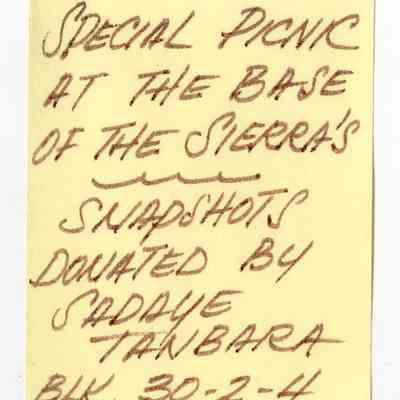 SPECIAL PICNIC
AT THE BASE
OF THE SIERRA'S
SNAPSHOTS
DONATED BY
SADAYE
TANBARA
BLK 30-2-4